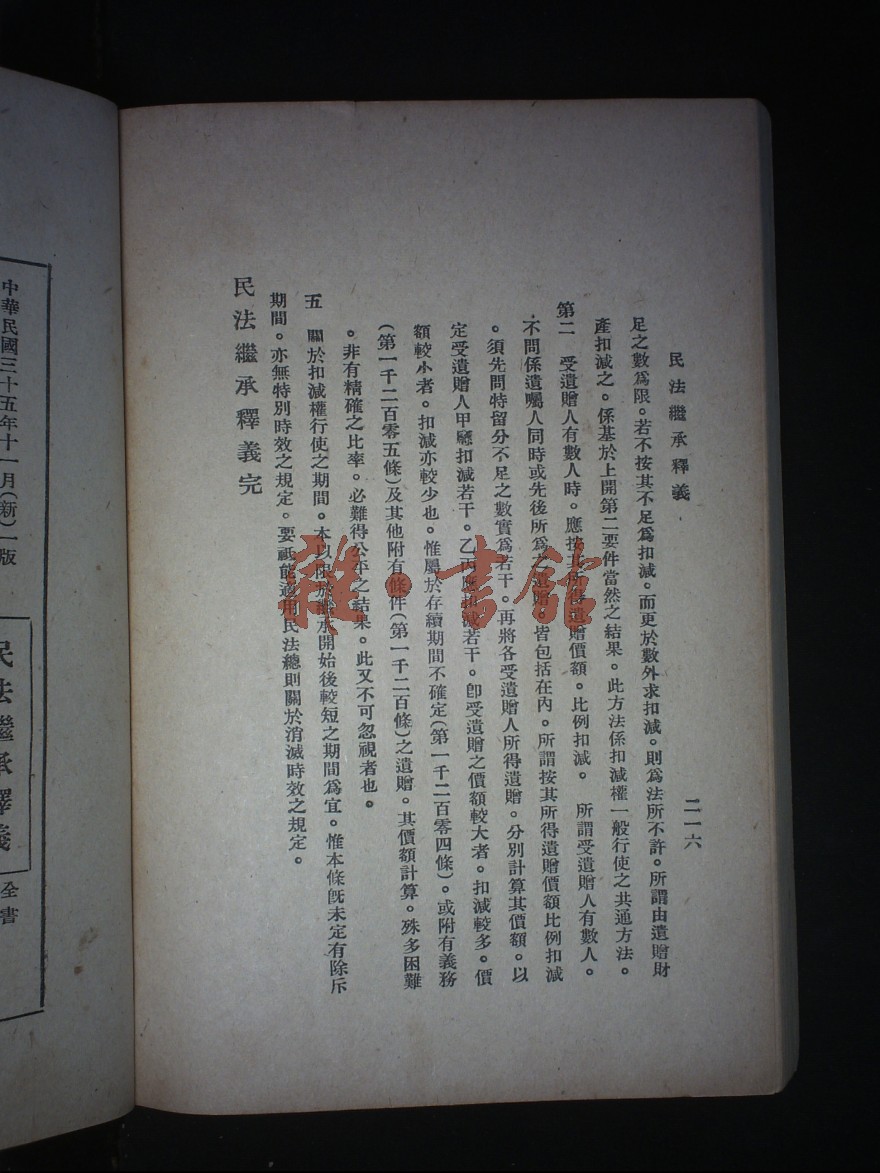 民法繼承釋義
二一六
足之數爲限。若不按其不足爲扣減。而更於數外求扣減。則爲法所不許。所謂由遺贈財
產扣減之。係基於上開第二要件當然之結果。此方法係扣減權一般行使之共通方法。
第二　受遺贈人有數人時。應按其所得遺贈價額。比例扣減。　所謂受遺贈人有數人。
不問係遺囑人同時或先後所爲之遺贈。皆包括在內。所謂按其所得遺贈價額比例扣減
。須先問特留分不足之數實爲若干。再將各受遺贈人所得遺贈。分別計算其價額。以
定受遺贈人甲應扣減若干。乙丙應扣減若干。卽受遺贈之價額較大者。扣減較多。價
額較小者。扣減亦較少也。惟屬於存續期間不確定(第一千二百零四條)。或附有義務
(第一千二百零五條)及其他附有條件(第一千二百條)之遺贈。其價額計算。殊多困難
。非有精確之比率。必難得公平之結果。此又不可忽視者也。
五　關於扣減權行使之期間。本以限於繼承開始後較短之期間爲宜。惟本條旣未定有除斥
期間。亦無特別時效之規定。要祇能適用民法總則關於消滅時效之規定。
民法繼承釋義完
民法繼承釋義
全書
中華民國三十五年十一月(新)一版
雜·書館